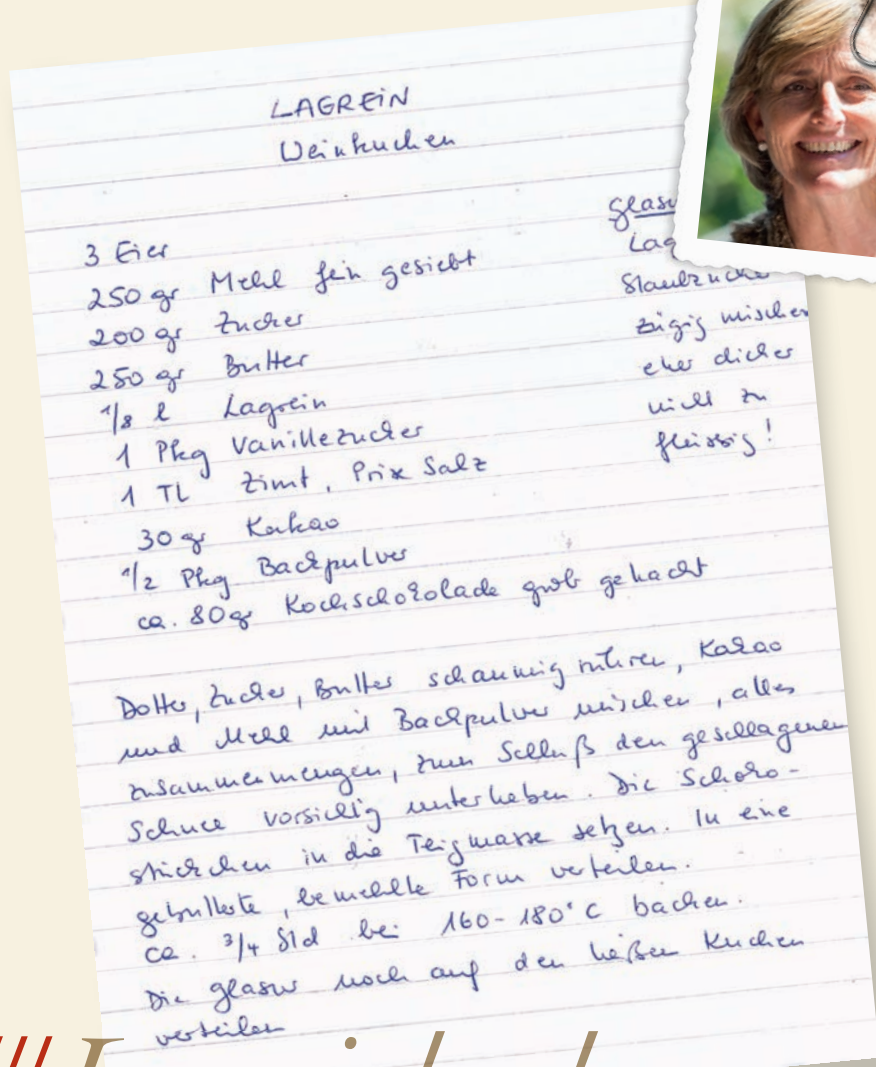 LAGREIN
Weinkuchen
3 Eier
250 gr Mehl fein gesiebt
200 gr Zucker
250 gr Butter
1/8 l Lagrein
1 Pkg Vanillezucker
1 TL Zimt, Prix Salz
30 gr Kakao
1/2 Pkg Backpulver
ca. 80 gr Kochschokolade grob gehackt
Glasu
Lag
Staubzucke
zügig mischen
eher dicker
nicht zu
flüssig!
Dotter, Zucker, Butter schaumig rühren, Kakao
und Mehl mit Backpulver mischen, alles
zusammenmengen, zum Schluß den geschlagenen
Schnee vorsichtig unterheben. Die Schoko-
stückchen in die Teigmasse setzen. In eine
gebutterte, bemehlte Form verteilen.
ca. 3/4 Std bei 160-180°C backen.
Die Glasur noch auf den heißen Kuchen
verteilen